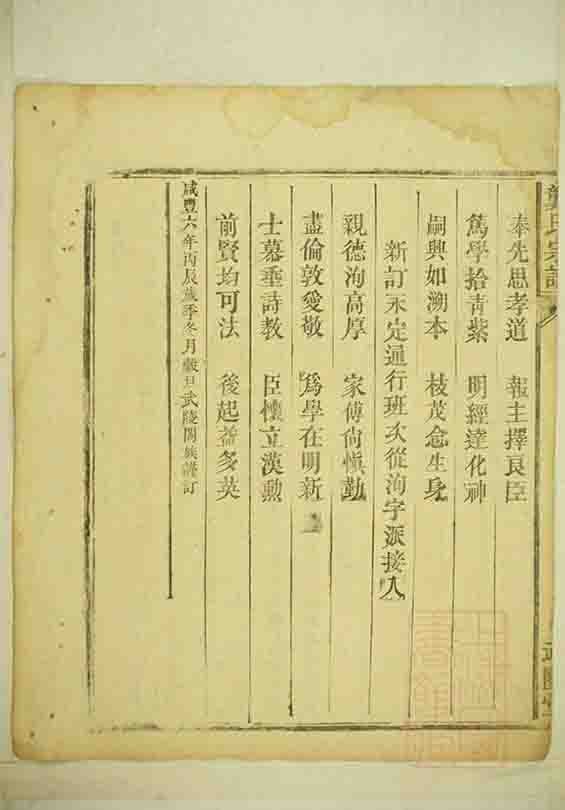 氏宗譜
奉先思孝道 報主擇良臣
篤學拾青紫 明經達化神
嗣興如溯本 枝茂念生身
新訂未定通行班次從洵字派接入
親德洵高厚 家傅尙愼勤
盡倫敦愛敬 爲學在明新
士慕垂詩教 臣懷立漢勲
前賢均可法 後起益多英
咸豐六年丙辰歲季冬月穀旦武陵闔族謹訂